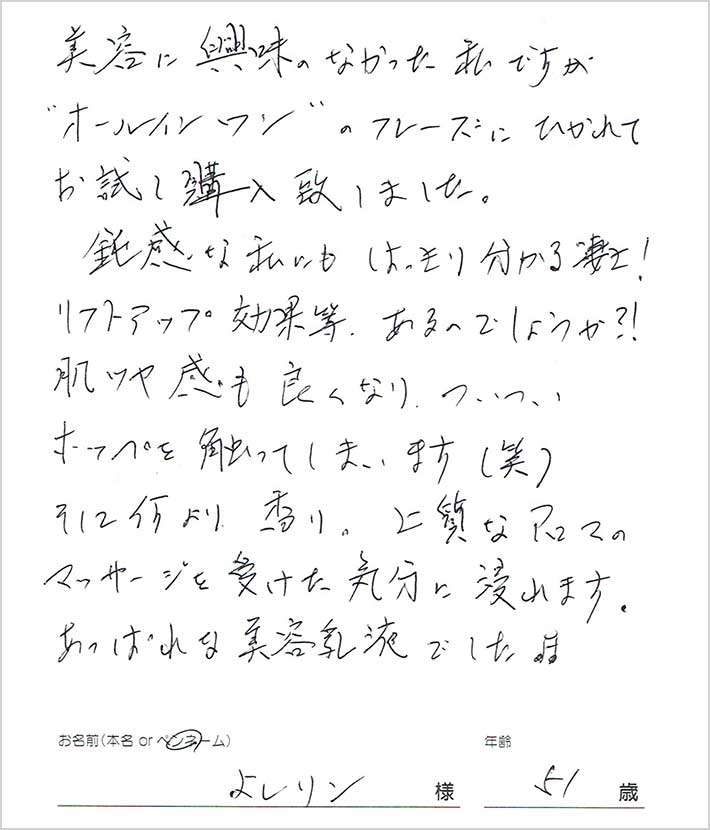 美容に興味のなかった私ですが
"オールインワン"のフレーズにひかれて
お試し購入致しました。
鈍感な私にもはっきり分かる凄さ!
リフトアップ効果等、あるのでしょうか?!
肌ツヤ感も良くなり、ついつい
ホッペを触ってしまいます(笑)
そして何より香り。上質なアロマの
マッサージを受けた気分に浸れます。
あっぱれな美容乳液でした
お名前(本名 or ペンネーム) 年齢
よしりん 様 51 歳